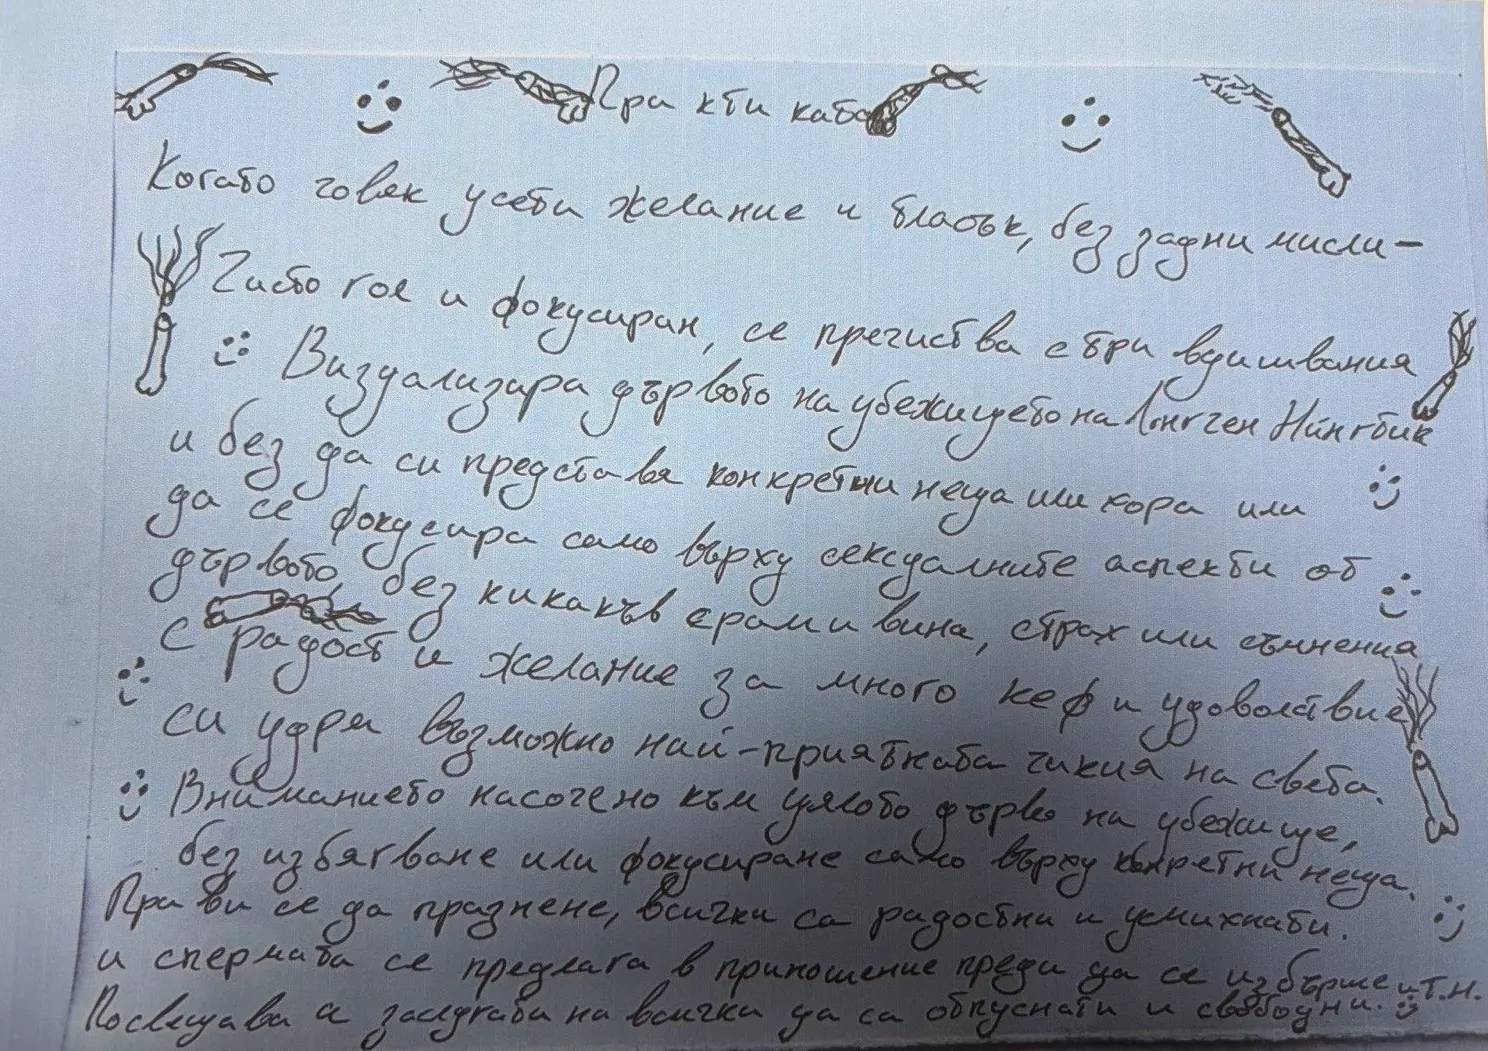 Практиката
Когато човек усети желание и тласък, без задни мисли -
Чисто гол и фокусиран, се пречиства с три вдишвания
Визуализира дървото на убежището на Лонгчен Нингтик
и без да си представя конкретни неща или хора или
да се фокусира само върху сексуалните аспекти от
дървото, без никакъв срам и вина, страх или съмнения
с радост и желание за много кеф и удоволствие
си удря възможно най-приятната чикия на света.
Вниманието насочено към цялото дърво на убежище,
без избягване или фокусиране само върху конкретни неща.
Прави се до празнене, всички са радостни и усмихнати.
и спермата се предлага в приношение преди да се избърше и т.н.
Посвещава се заслугата на всички да са отпуснати и свободни.